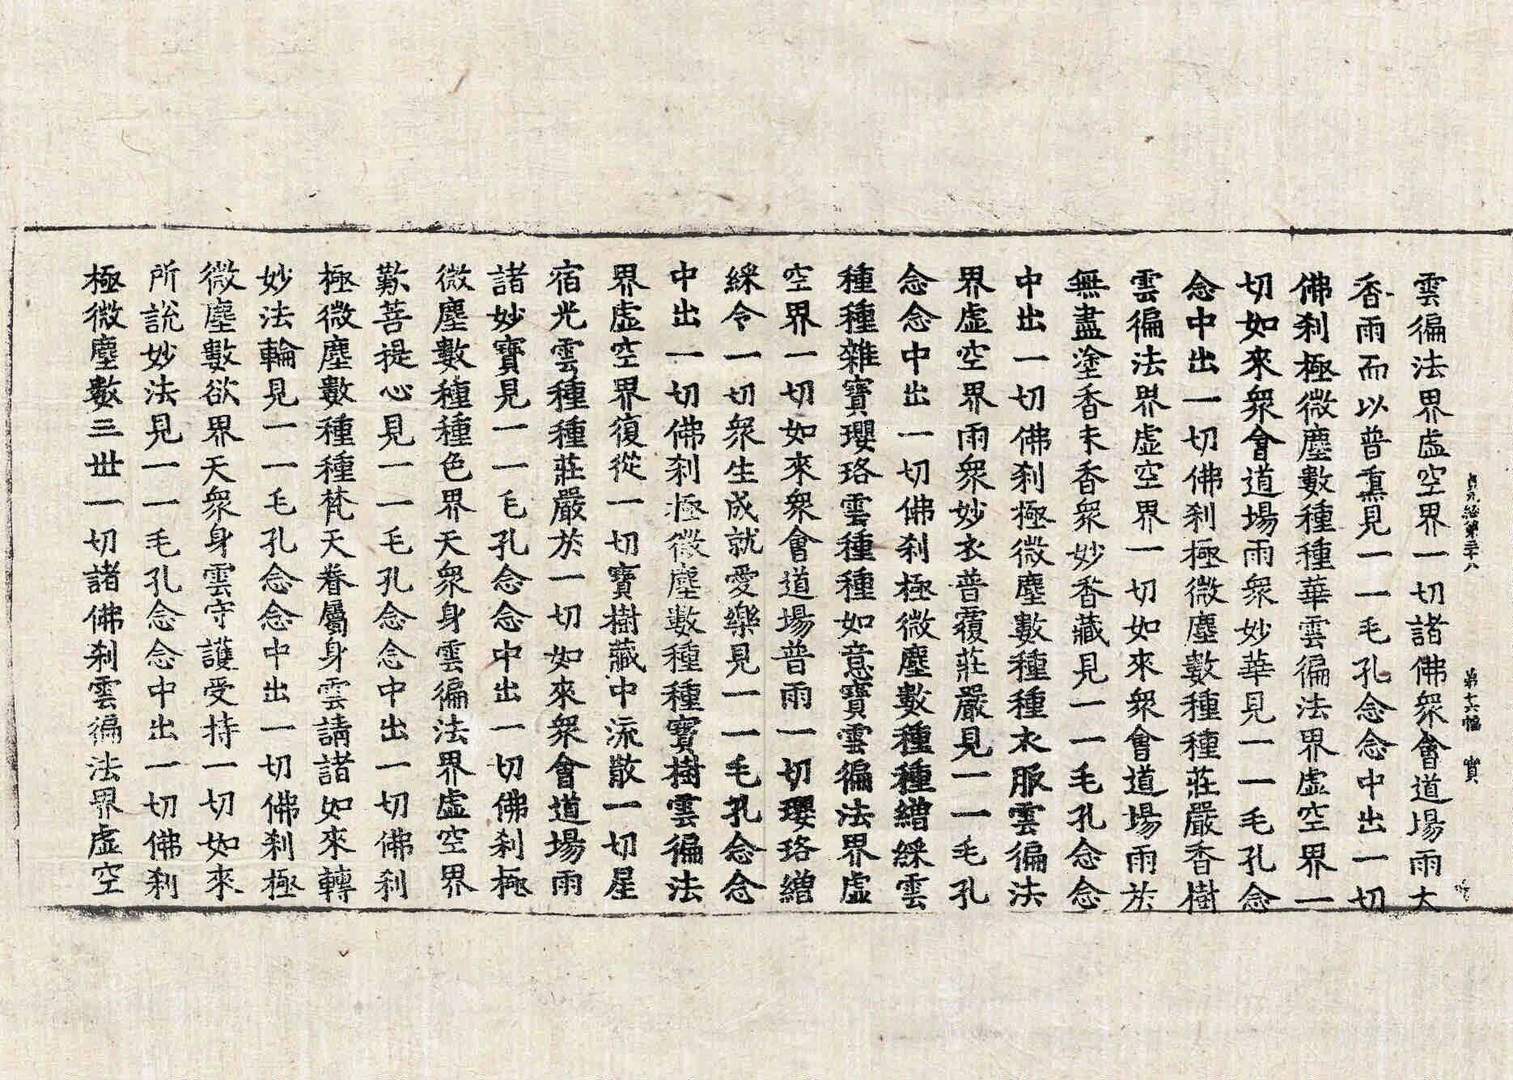 貞元經第三十八　第十六幅　實
雲徧法界虛空界一切諸佛衆會道場雨大
香雨而以普熏見一一毛孔念念中出一切
佛刹極微塵數種種華雲徧法界虛空界一
切如來衆會道場雨衆妙華見一一毛孔念
念中出一切佛刹極微塵數種種莊嚴香樹
雲徧法界虛空界一切如來衆會道場雨於
無盡塗香末香衆妙香藏見一一毛孔念念
中出一切佛刹極微塵數種種衣服雲徧法
界虛空界雨衆妙衣普覆莊嚴見一一毛孔
念念中出一切佛刹極微塵數種種繒綵雲
種種雜寶瓔珞雲種種如意寶雲徧法界虛
空界一切如來衆會道場普雨一切瓔珞繒
綵令一切衆生成就愛樂見一一毛孔念念
中出一切佛刹極微塵數種種寶樹雲徧法
界虛空界復從一切寶樹藏中流散一切星
宿光雲種種莊嚴於一切如來衆會道場雨
諸妙寶見一一毛孔念念中出一切佛刹極
微塵數種種色界天衆身雲徧法界虛空界
歎菩提心見一一毛孔念念中出一切佛刹
極微塵數種種梵天眷屬身雲請諸如來轉
妙法輪見一一毛孔念念中出一切佛刹極
微塵數欲界天衆身雲守護受持一切如來
所說妙法見一一毛孔念念中出一切佛刹
極微塵數三世一切諸佛刹雲徧法界虛空